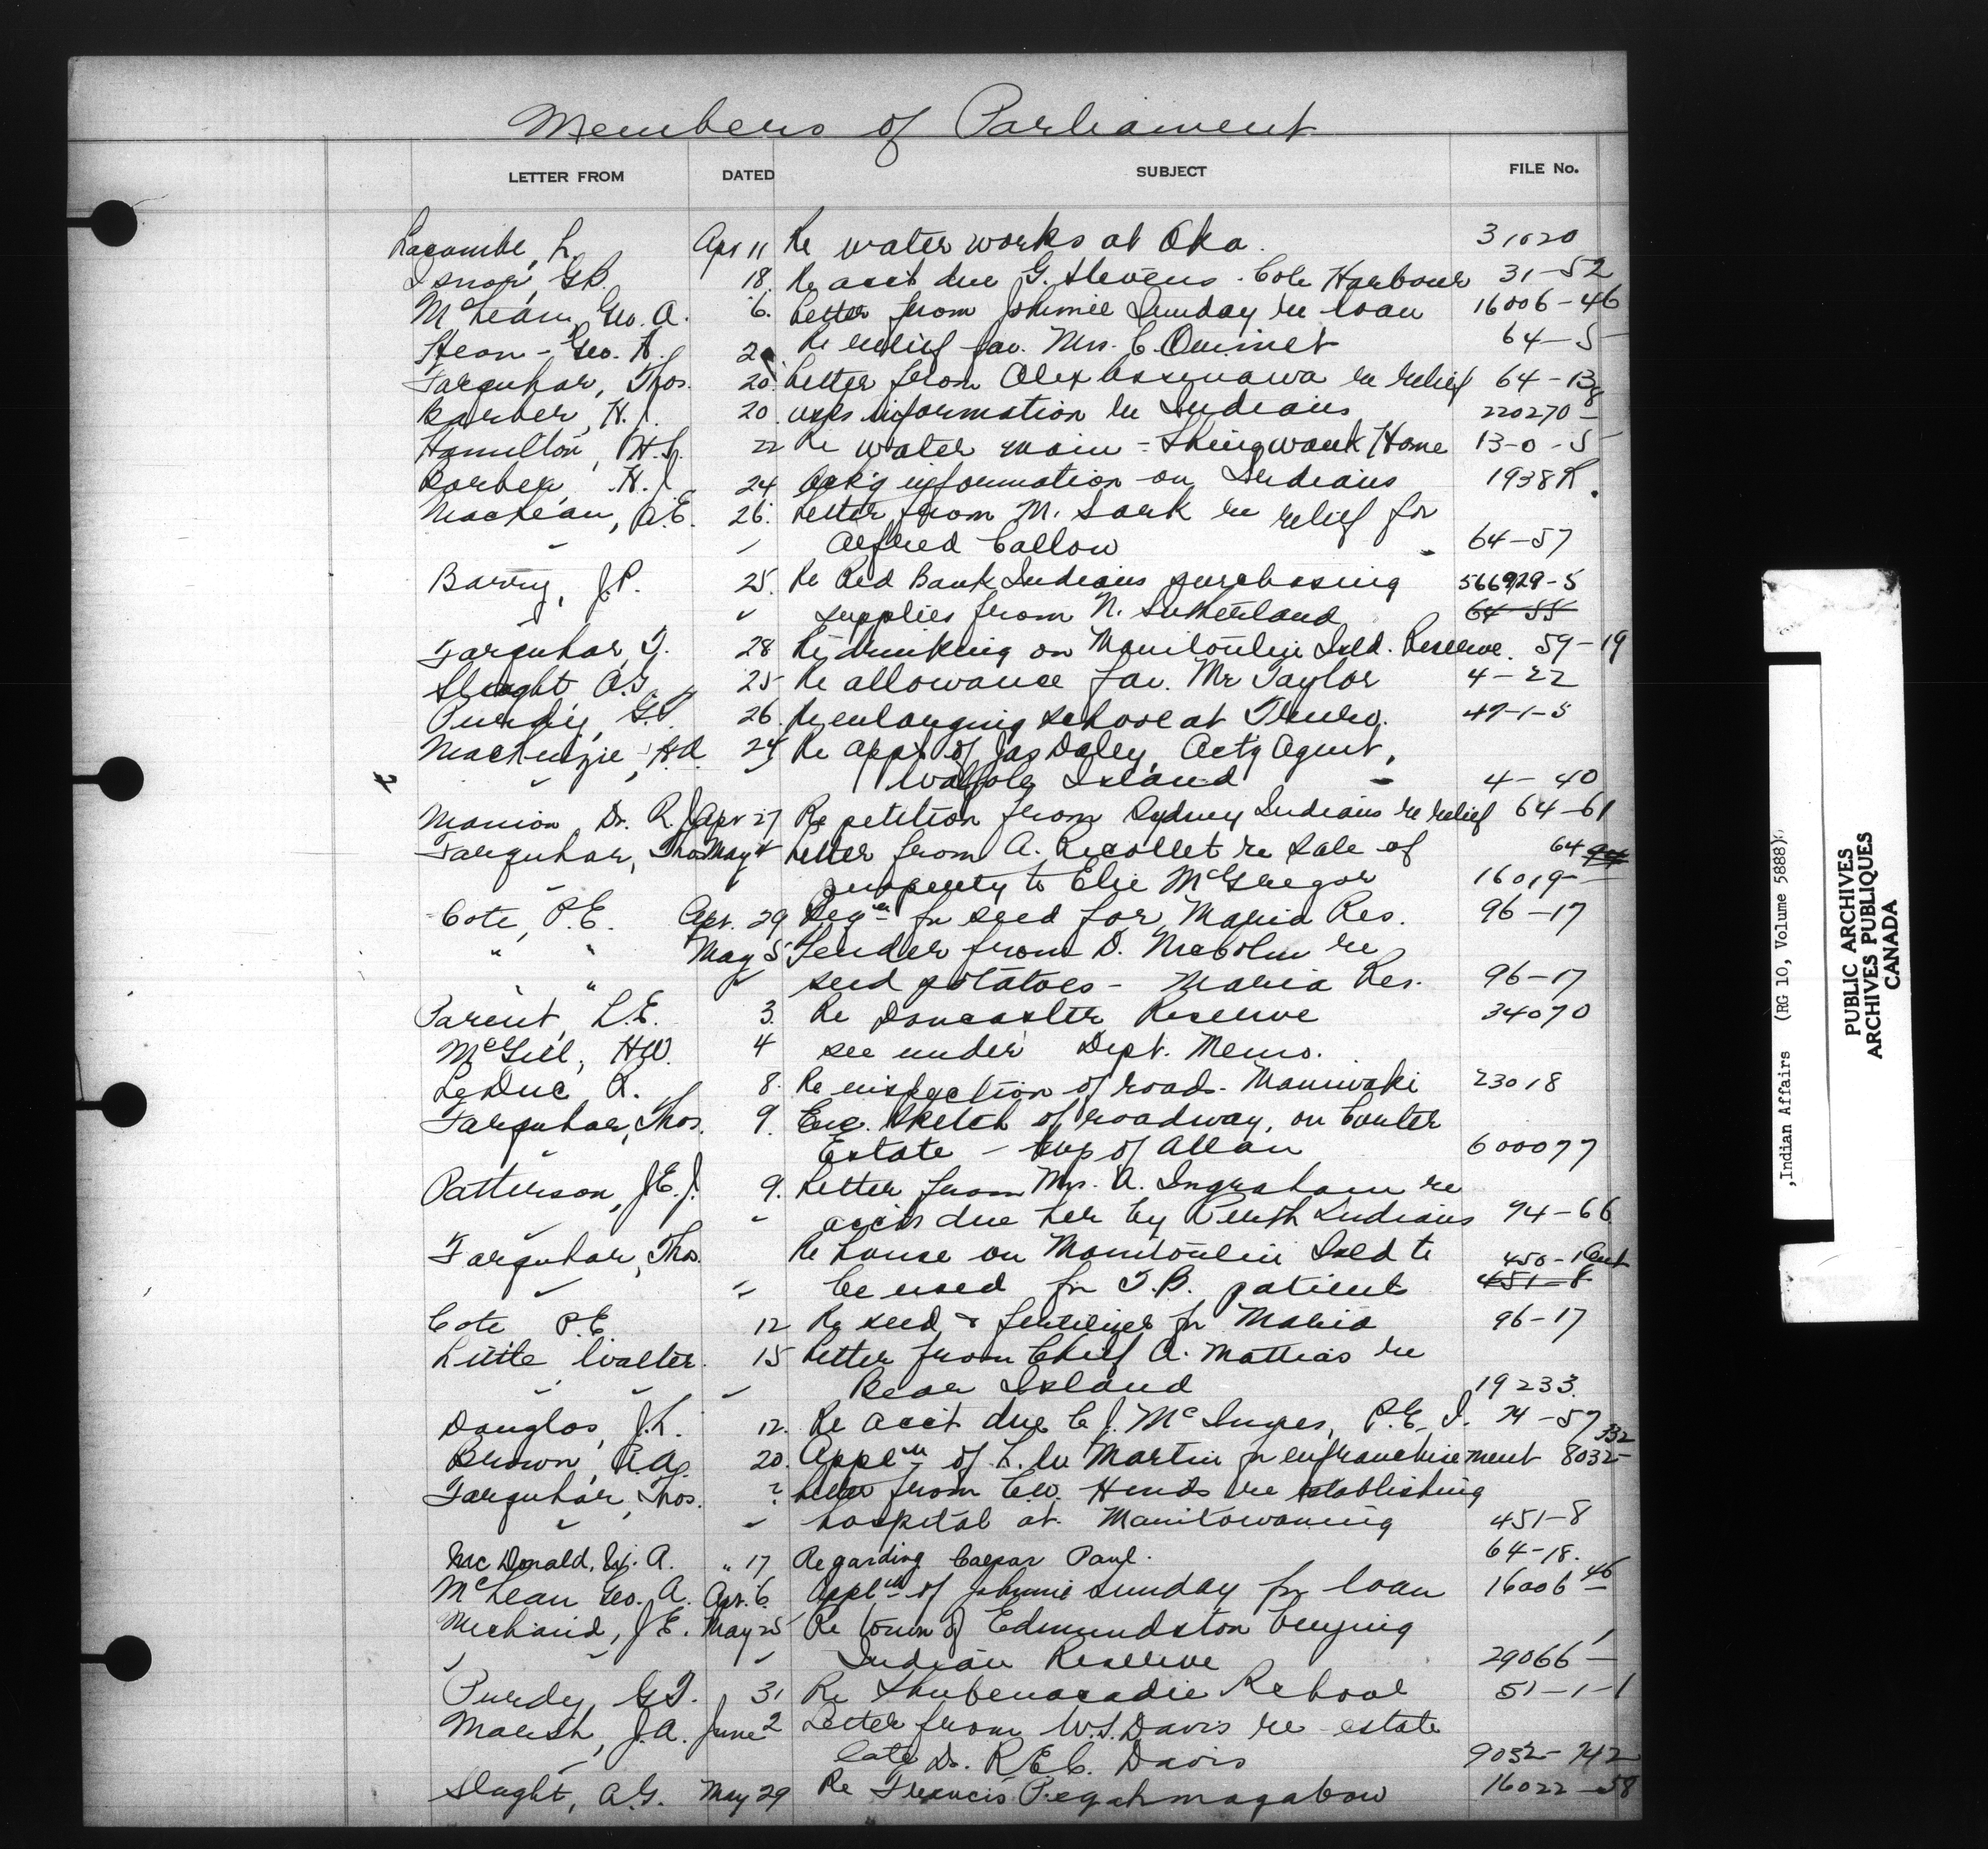 Members of Parliament
LETTER FROM DATED SUBJECT FILE No.
Lacombe, L. Apr 11 Re water works at Oka. 31020
Isnor, G.B. 18. Re acct due G. Stevens - Cole Harbour 31-52
McLean, Geo. A. 6. Letter from Johnnie Sunday re loan 16006-46
Geo. H. Re relief for Mrs. C. Ouimet 64-5
Farquhar, Thos. 20 Letter from Alex Assinawa re relief 64-13
Barber, H.J. 20. asks information re Indians 220270-8
Hamilton, H.S. 22 Re water main - Shingwauk Home 13-0-5
Barber, H.J. 24 Ask'g information on Indians 1938R.
MacLean, A.E. 26. Letter from M. Sark re relief for
" " Alfred Callow 64-57
Barry, J.P. 25. Re Red Bank Indians purchasing 566929-5
" " supplies from N. Sutherland 64-55
Farquhar, T. 28 Re drinking on Manitoulin Isld. Reserve. 59-19
Slaght A.G. 25 Re allowance for Mr Taylor 4-22
Purdy, G.T. 26. Re enlarging school at Truro. 47-1-5
MacKenzie, H.A. 24 Re appt of Jas Daley, Act'g Agent,
" Walpole Island - 4-40
Manion Dr. R.J. Apr 27 Re petition from Sydney Indians re relief 64-61
Farquhar, Thos May 4 Letter from A. Recollet re sale of 64
" property to Elie McGregor 16019-
Cote, P.E. Apr. 29 Reqn for seed for Maria Res. 96-17
" " May 5 Tender from D. re
" " " seed potatoes - Maria Res. 96-17
Parent, L.E. 3. Re Doncaster Reserve 34070
McGill, H.W. 4 see under Dept. Memo.
LeDuc R. 8. Re inspection of road - Maniwaki 23018
Farquhar, Thos. 9. Enc. sketch of roadway, on
" Estate - twp of Allan 600077
Patterson, J.E.J. 9. Letter from Mrs. A. Ingraham re
" " accts due her by Indians 74-66
Farquhar, Thos. Re house on Manitoulin Isld to 450-1
" " be used for T.B. patient 451-8
Cote P.E. 12 Re seed & fertilizer for Maria 96-17
Little, Walter. 15 Letter from Chief A. Mattias re
" " " Bear Island 19233.
Douglas, J.L. 12. Re acct due C.J. McInnes, P.E.I. 74-57
Brown, A.A. 20. Appln of L.W. Martin for enfranchisement 8032-332
Farquhar, Thos. ? Letter from C.W. Hinds re establishing
" " hospital at Manitowaning 451-8
MacDonald, W. A. " 17 Regarding Caesar Paul. 64-18.
McLean Geo. A. Apr. 6. Appln of Johnnie Sunday for loan 16006-46
Michaud, J.E. May 25 Re town of Edmundston buying
" " " Indian Reserve 29066-1
Purdy, G.T. 31 Re Shubenacadie School 51-1-1
Marsh, J.A. June 2 Letter from W.S. Davis re estate
late Dr. R.E.C. Davis 9032-742
Slaght, A.G. May 29 Re Francis Pegahmagabow 16022-58
,Indian Affairs (RG 10, Volume 5888)
PUBLIC ARCHIVES
ARCHIVES PUBLIQUES
CANADA